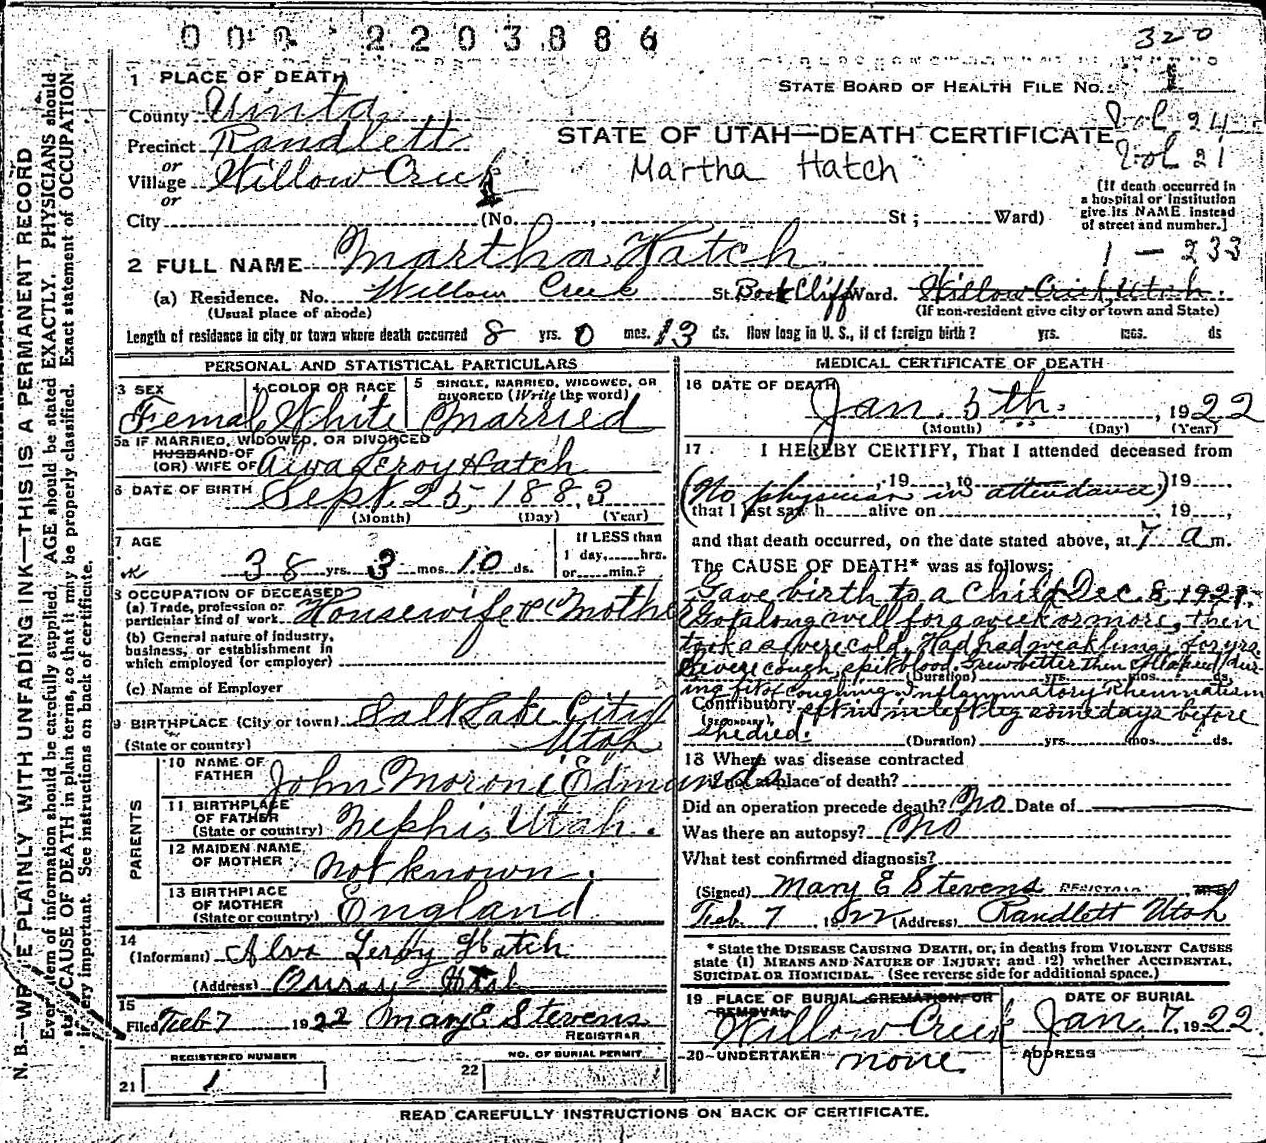 000 2203886
320
1 PLACE OF DEATH
STATE BOARD OF HEALTH FILE No. 1
County Uinta
Vol 24
Precinct Randlett
STATE OF UTAH—DEATH CERTIFICATE
Vol 21
or
Village Willow Creek
Martha Hatch
or
City (No. , St ; Ward)
[If death occurred in
a hospital or institution
give its NAME instead
of street and number.]
1 - 233
2 FULL NAME Martha Hatch
(a) Residence. No. Willow Creek St. Book Cliff Ward. Willow Creek, Utah.
(Usual place of abode)
(If non-resident give city or town and State)
Length of residence in city or town where death occurred 8 yrs. 0 mos. 13 ds. How long in U. S., if of foreign birth? yrs. mos. ds
PERSONAL AND STATISTICAL PARTICULARS
3 SEX
Femal
4 COLOR OR RACE
White
5 SINGLE, MARRIED, WIDOWED, OR
DIVORCED (Write the word)
Married
5a IF MARRIED, WIDOWED, OR DIVORCED
HUSBAND OF
(OR) WIFE OF Alva Leroy Hatch
6 DATE OF BIRTH Sept. 25, 1883
(Month) (Day) (Year)
7 AGE
38 yrs. 3 mos. 10 ds.
If LESS than
1 day, hrs.
or min.?
8 OCCUPATION OF DECEASED
(a) Trade, profession or
particular kind of work Housewife & Mother
(b) General nature of industry,
business, or establishment in
which employed (or employer)
(c) Name of Employer
9 BIRTHPLACE (City or town) Salt Lake City
(State or country) Utah
PARENTS
10 NAME OF
FATHER John Moroni Edmunds
11 BIRTHPLACE
OF FATHER
(State or country) Nephi, Utah.
12 MAIDEN NAME
OF MOTHER not known.
13 BIRTHPLACE
OF MOTHER
(State or country) England
14
(Informant) Alva Leroy Hatch
(Address) Ouray Utah
15
Filed Feb 7 1922 Mary E Stevens
REGISTRAR
REGISTERED NUMBER
21 1
NO. OF BURIAL PERMIT
22
MEDICAL CERTIFICATE OF DEATH
16 DATE OF DEATH
Jan. 5th. , 1922
(Month) (Day) (Year)
17 I HEREBY CERTIFY, That I attended deceased from
, 19 , to , 19
(No physician in attendance)
that I last saw h alive on , 19 ,
and that death occurred, on the date stated above, at 7 a m.
The CAUSE OF DEATH* was as follows:
Gave birth to a Child Dec. 8, 1921.
Got along well for a week or more, then
took a severe cold. Had had weak lungs for yrs.
Severe cough, spit blood, Grew better then
(Duration) yrs. mos. ds.
ing fit of coughing. Inflammatory Rheumatism
Contributory set in in left leg some days before
(SECONDARY)
she died.
(Duration) yrs. mos. ds.
18 Where was disease contracted
if not at place of death?
Did an operation precede death? No Date of
Was there an autopsy? No
What test confirmed diagnosis?
(Signed) Mary E Stevens REGISTRAR
Feb. 7 1922 (Address) Randlett Utah
* State the DISEASE CAUSING DEATH, or, in deaths from VIOLENT CAUSES
state (1) MEANS AND NATURE OF INJURY; and (2) whether ACCIDENTAL,
SUICIDAL OR HOMICIDAL. (See reverse side for additional space.)
19 PLACE OF BURIAL CREMATION, OR
REMOVAL
Willow Creek
DATE OF BURIAL
Jan. 7. 1922.
20 UNDERTAKER
none
ADDRESS
READ CAREFULLY INSTRUCTIONS ON BACK OF CERTIFICATE.
N. B.—WRITE PLAINLY WITH UNFADING INK—THIS IS A PERMANENT RECORD
Every item of information should be carefully supplied. AGE should be stated EXACTLY. PHYSICIANS should
state CAUSE OF DEATH in plain terms, so that it may be properly classified. Exact statement of OCCUPATION
is very important. See instructions on back of certificate.